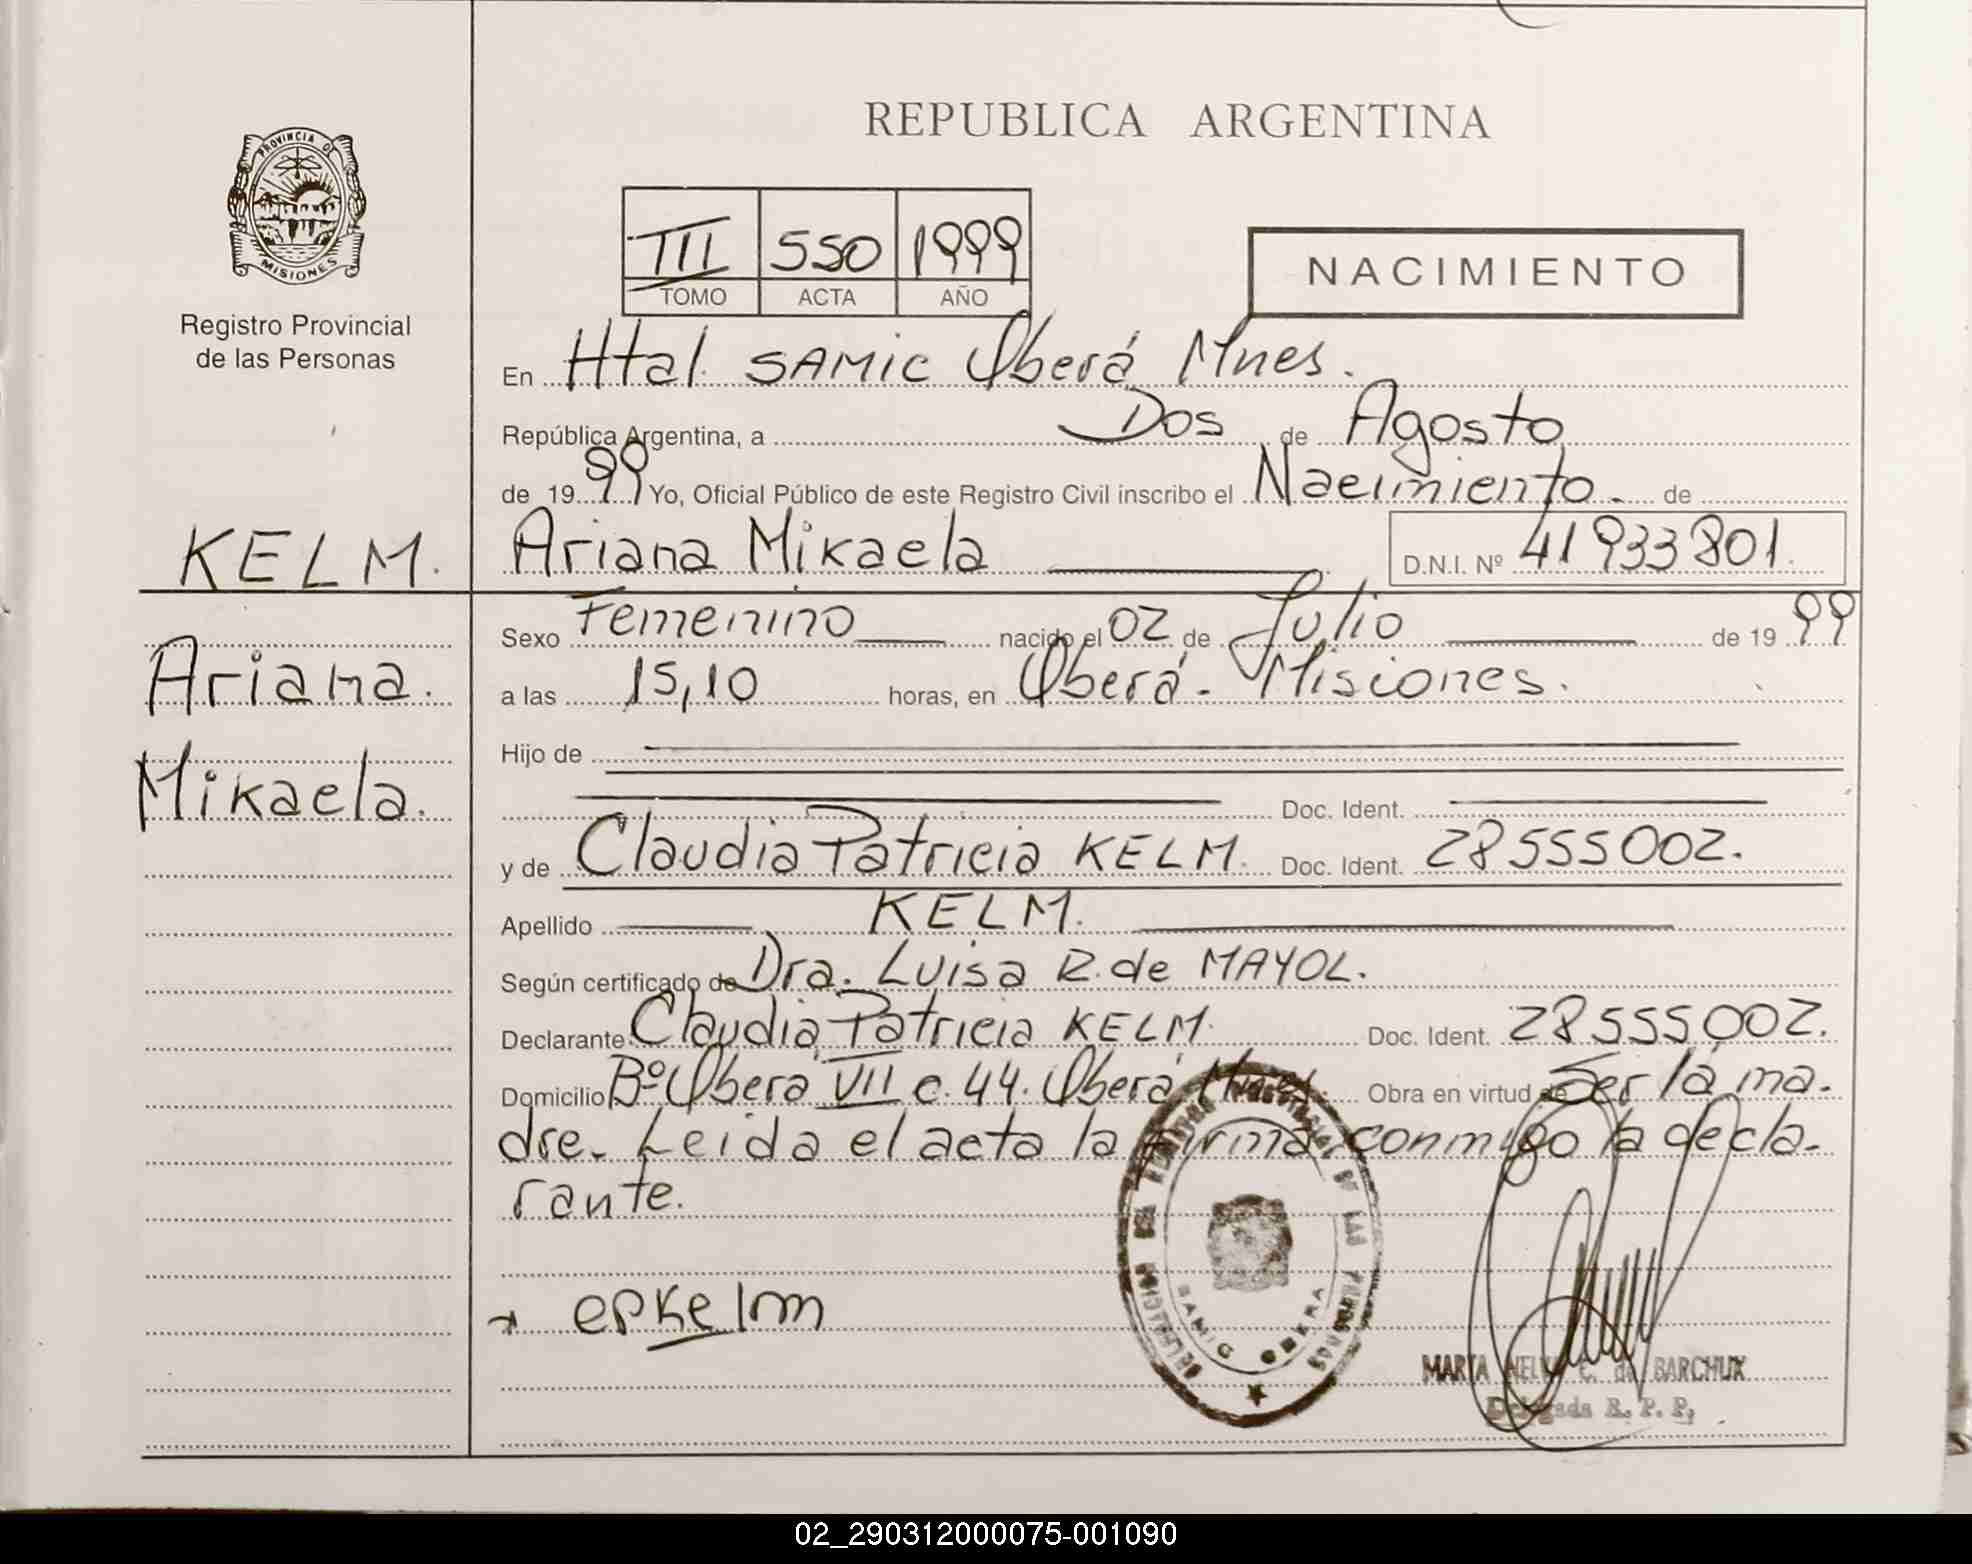 REPUBLICA ARGENTINA
PROVINCIA DE
MISIONES
Registro Provincial
de las Personas
III 550 1999
TOMO ACTA AÑO
NACIMIENTO
En Htal. SAMIC Oberá Mnes.
República Argentina, a Dos de Agosto
de 1999 Yo, Oficial Público de este Registro Civil inscribo el Nacimiento. de
KELM. Ariana Mikaela D.N.I. Nº 41933801.
Sexo Femenino nacido el 02 de Julio de 1999
Ariana. a las 15,10 horas, en Oberá. Misiones.
Hijo de
Mikaela.
Doc. Ident.
y de Claudia Patricia KELM. Doc. Ident. 28555002.
Apellido KELM.
Según certificado de Dra. Luisa R. de MAYOL.
Declarante Claudia Patricia KELM. Doc. Ident. 28555002.
Domicilio Bº Oberá VII c. 44. Oberá Mnes. Obra en virtud de Ser la ma.
dre. Leida el acta la firma conmigo la decla.
rante.
epkelm
SAMIC OBERA
MARTA C. de BARCHUK
Delegada R. P. P.
02_290312000075-001090